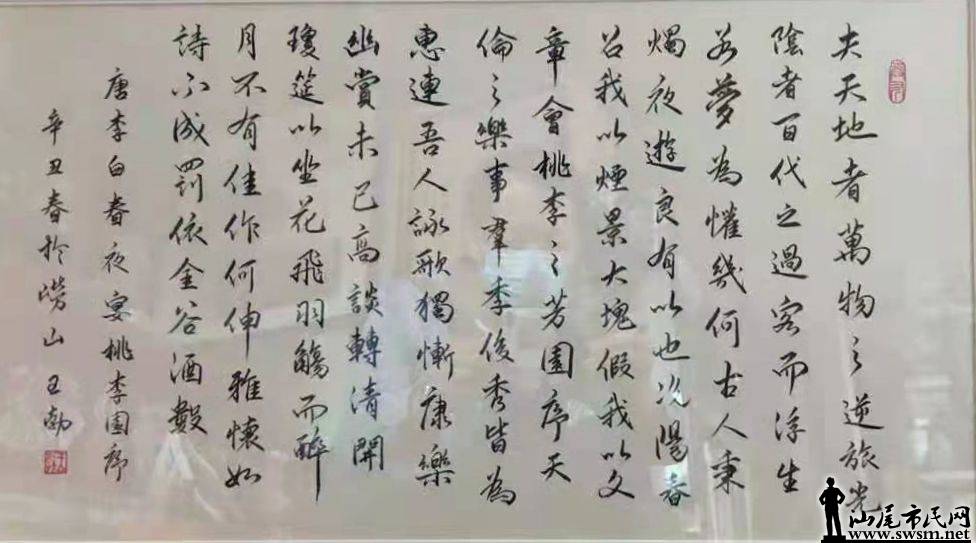 夫天地者萬物之逆旅光
陰者百代之過客而浮生
若夢為懽幾何古人秉
燭夜遊良有以也况陽春
召我以煙景大塊假我以文
章會桃李之芳園序天
倫之樂事羣季俊秀皆為
惠連吾人詠歌獨慚康樂
幽賞未已高談轉清開
瓊筵以坐花飛羽觴而醉
月不有佳作何伸雅懷如
詩不成罰依金谷酒數
唐李白春夜宴桃李園序
辛丑春於嶗山 王勃
汕尾市民网
www.swsm.net